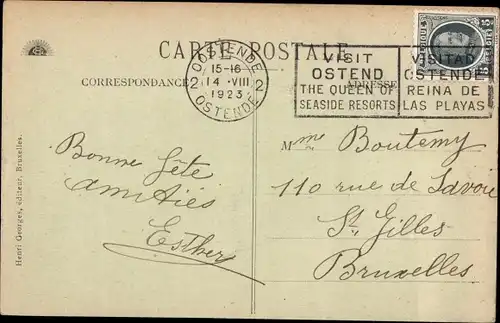 CARTE POSTALE
CORRESPONDANCE
ADRESSE
OOSTENDE
15-16
14 ·VIII
1923
2 2
OSTENDE
VISIT
OSTEND
THE QUEEN OF
SEASIDE RESORTS
VISITAD
OSTENDE
REINA DE
LAS PLAYAS
BELGIQUE
Bonne fête
amitiés
Esther
Mme Boutemy
110 rue de Savoie
St. Gilles
Bruxelles
Henri Georges, éditeur, Bruxelles.